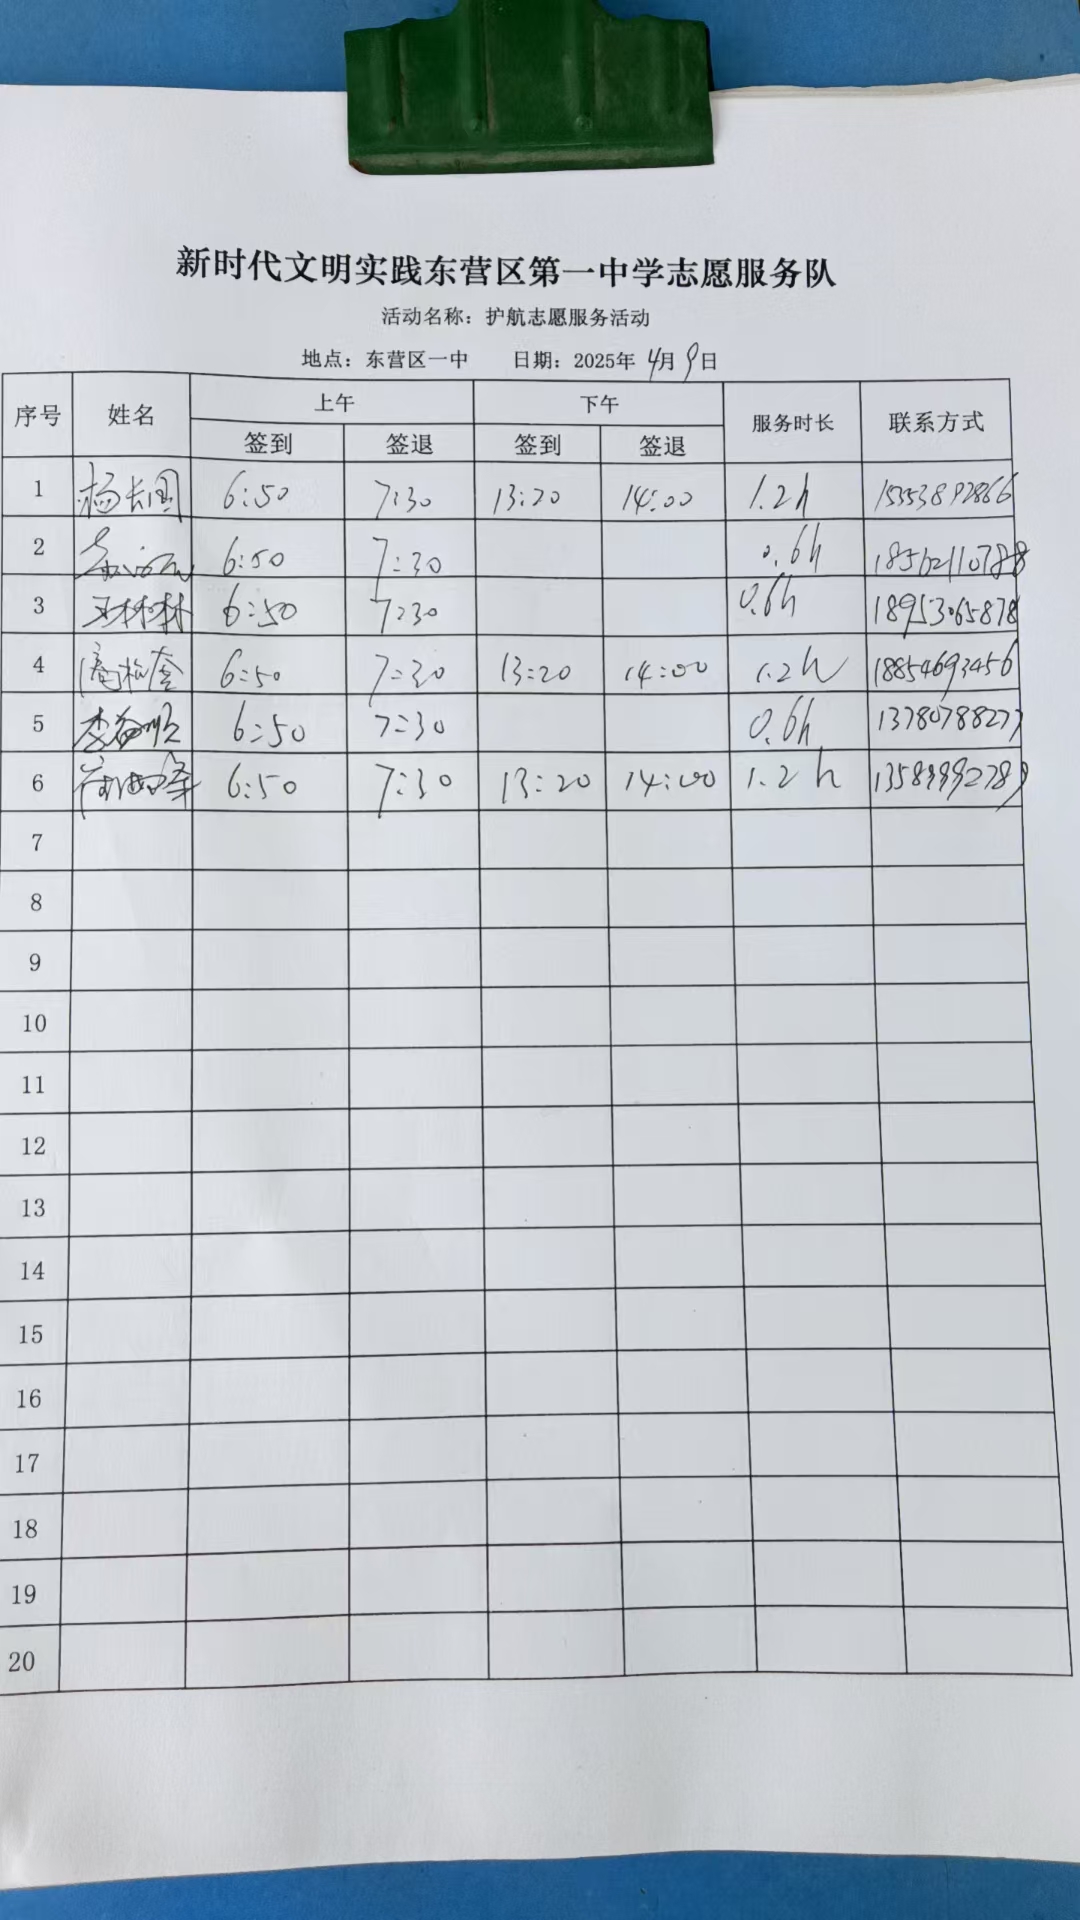 新时代文明实践东营区第一中学志愿服务队
活动名称：护航志愿服务活动
地点：东营区一中 日期：2025年 4月 9日
序号 姓名 上午 下午 服务时长 联系方式
签到 签退 签到 签退
1 杨长国 6:50 7:30 13:20 14:00 1.2h 15553892866
2 6:50 7:30 0.6h 18562110788
3 王林林 6:50 7:30 0.6h 18953065878
4 6:50 7:30 13:20 14:00 1.2h 18854693456
5 6:50 7:30 0.6h 13780788277
6 6:50 7:30 13:20 14:00 1.2h 13589992789
7
8
9
10
11
12
13
14
15
16
17
18
19
20